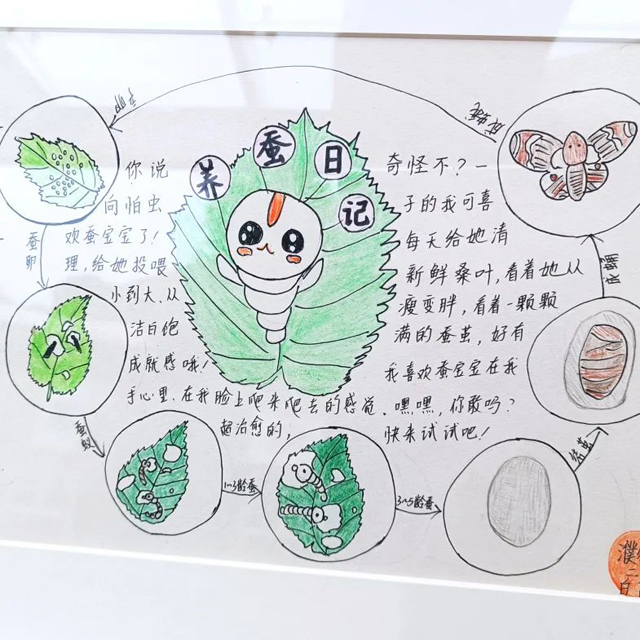 养蚕日记
你说 奇怪不?一
向怕虫 子的我可喜
欢蚕宝宝了! 每天给她清
理,给她投喂 新鲜桑叶,看着她从
小到大、从 瘦变胖,看着一颗颗
洁白饱 满的蚕茧,好有
成就感哦! 我喜欢蚕宝宝在我
手心里、在我脸上爬来爬去的感觉, 嘿嘿,你敢吗?
超治愈的, 快来试试吧!
产卵
蚕卵
蚕蚁
1~3龄蚕
3~5龄蚕
结茧
成蛹
濮
二
日